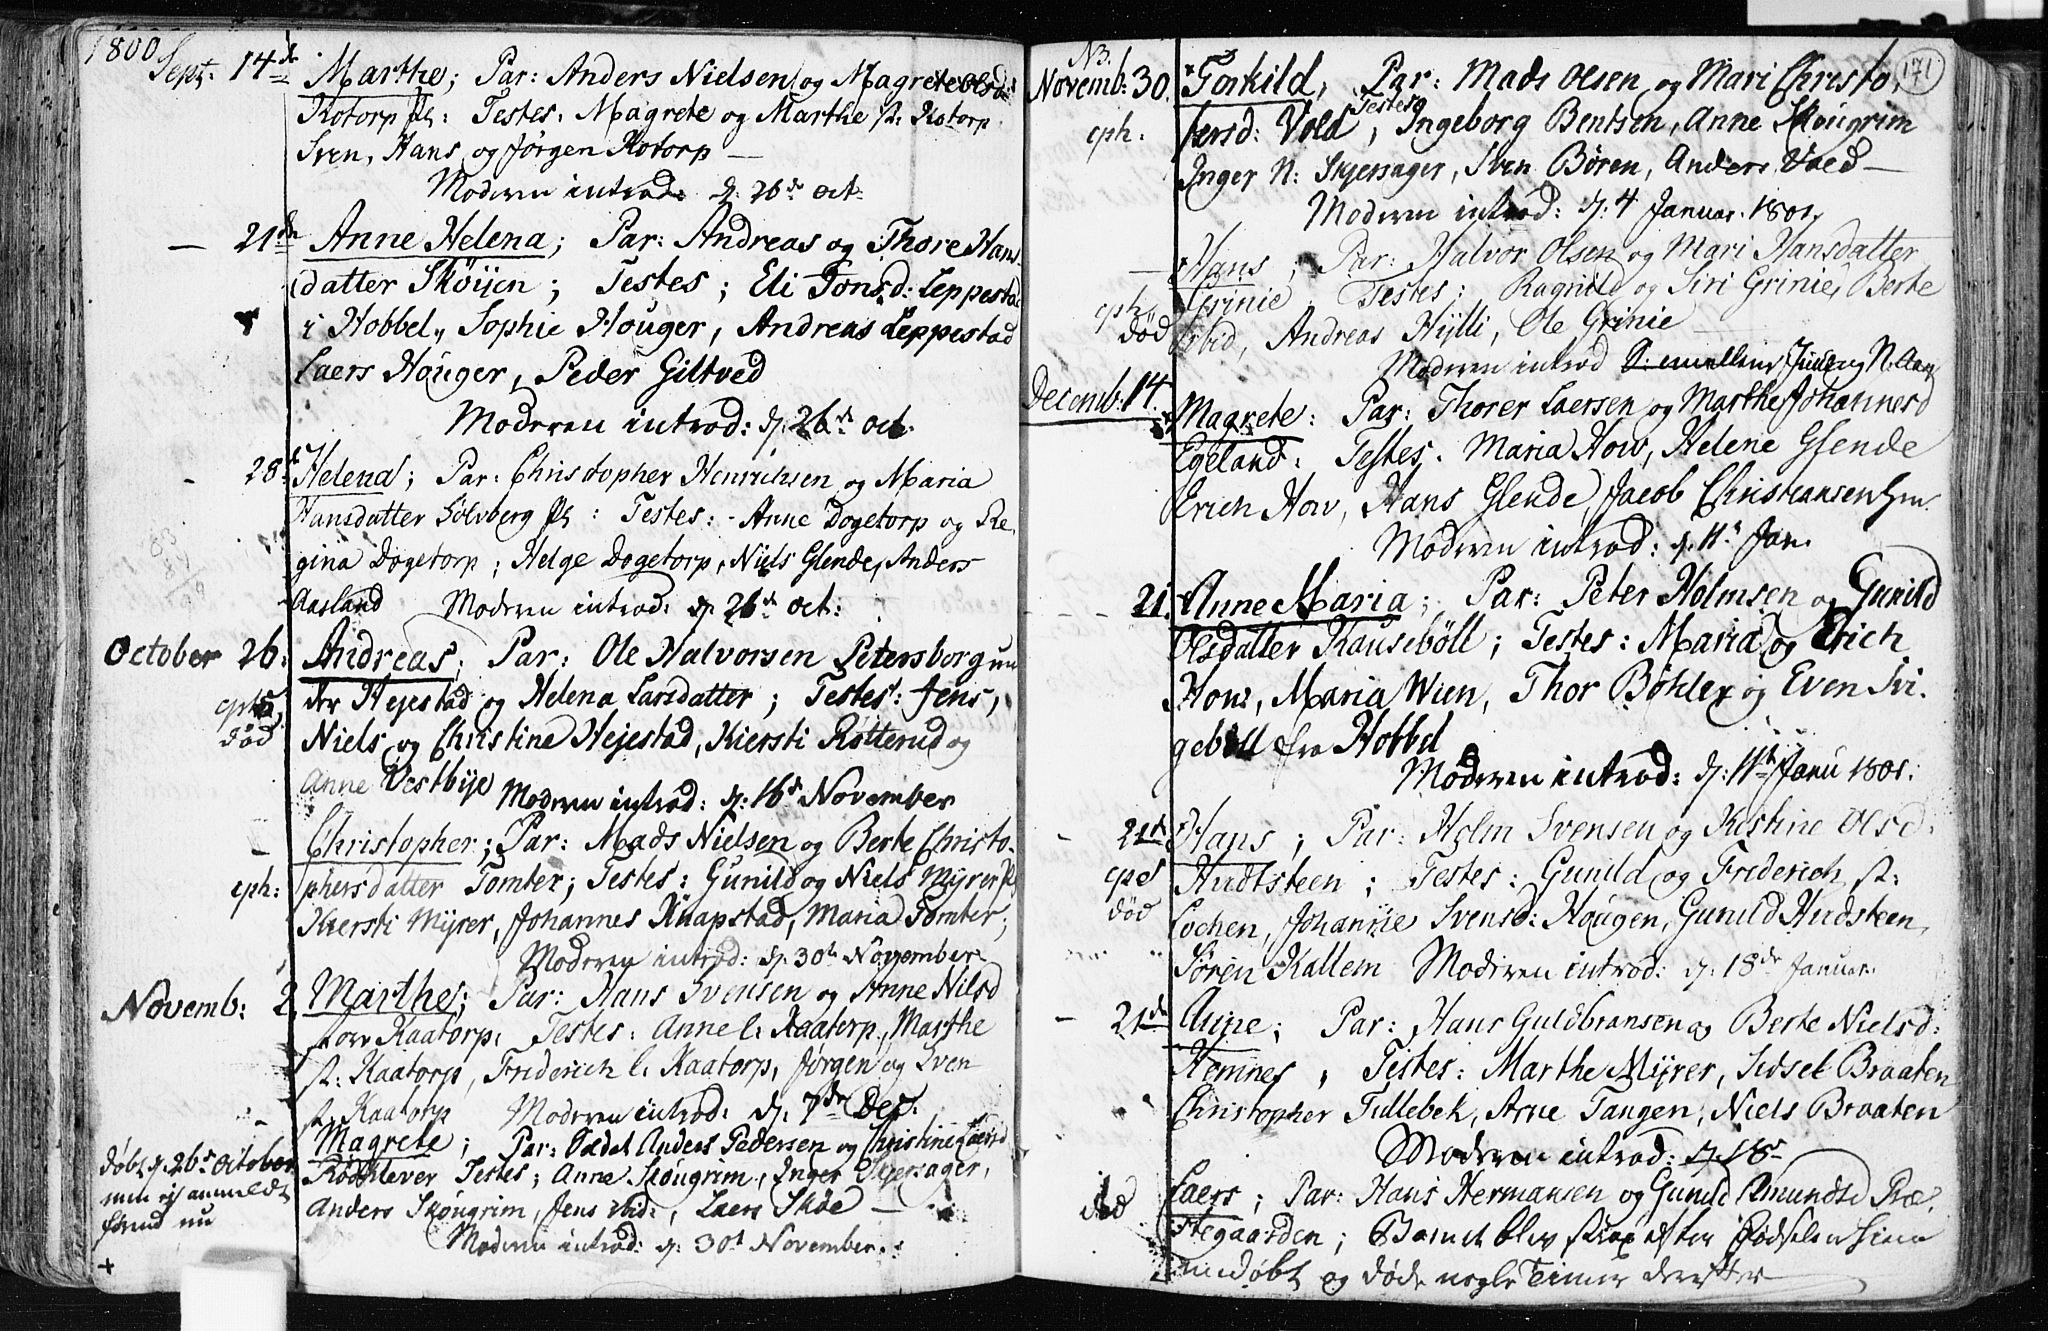 1800
Sept: 14d Marthe; Par: Anders Nielsen og Magrete Olsd:
Kotorp Pl: Testes: Magrete og Marthe st: Kotorp
Sven, Hans og Jørgen Kotorp —
Moderen introd: d: 26d Oct:
— 21de Anne Helena; Par: Andreas og Thore Hans-
datter Skøijen; Testes; Eli Jonsd: Leppestad
i Hobbel, Sophie Houger, Andreas Leppestad
Laers Houger, Peder Giltved
Moderen introd: d: 26d Oct.
- 28d Helena; Par: Christopher Henrichsen og Maria
Hansdatter Sölvberg Pl: Testes: Anne Dogetorp og Re-
gina Dogetorp; Helge Dogetorp, Niels Glende, Anders
Aasland Moderen introd: d: 26d Oct:
October 26: Andreas; Par: Ole Halvorsen Petersborg un
der Hejestad og Helena Larsdatter; Testes: Jens,
eph: død
Niels og Christine Hejestad, Kiersti Rötterud og
Anne Vestbye Moderen introd: d: 16d November
— Christopher; Par: Mads Nielsen og Berte Christo-
eph: phersdatter Tomter; Testes: Gunild og Niels Myrer Pl
Kiersti Mijrer, Johannes Knapstad, Maria Tomter;
Moderen introd: d: 30d November
Novemb: 2 Marthe; Par: Hans Svensen og Anne Nilsd
stor Kaatorp: Testes: Anne l: Kaatorp, Marthe
st: Kaatorp, Friderich l: Kaatorp, Jørgen og Sven
st: Kaatorp Moderen introd: d: 7de Dec:
Magrete; Par: Anders Pedersen og Christine Laersd
døbt d. 26d October
men ej anmeldt
førend nu
Rödklever Testes; Anne Skøugrim, Inger Skjersager,
Anders Skøugrim, Jens ibid:, Laers Skøe —
Moderen introd: d: 30d November.
+
N3. 171
Novemb: 30. Torkild, Par: Mads Olsen og Mari Christo,
eph: fersd: Vold; Testes Ingeborg Bentsen, Anne Skøugrim
Inger N: Skjersager, Sven Bören, Anders Voed —
Moderen introd: d: 4 Januar. 1801,
— Hans; Par: Halvor Olsen og Mari Hansdatter
eph: død
Grinie Testes: Ragnild og Siri Grinie, Berte
ibid, Andreas Hylli, Ole Grinie —
Moderen introd
Decemb: 14. Magrete: Par: Thorer Laersen og Marthe Johannesd
Egeland: Testes: Maria How, Helene Glende
Erich How, Hans Glende, Jacob Christiansen
Moderen introd: d. 11t Jan.
- - - 21. Anne Maria; Par: Peter Holmsen og Gunild
Olsdatter Kauseböll; Testes: Maria og Erich
How, Maria Wien, Thor Böhler og Even Svi-
geböll fra Hobbel
Moderen introd: d: 11te Janu 1801.
- 21d Hans; Par: Holm Svensen og Kistine Olsd:
død
Hudtsteen; Testes: Gunild og Friderich st:
Lochen, Johanne Svensd: Hougen, Gunild Hudsteen,
Sören Kallem Moderen introd: d: 18de Januar.
- 21de Anne; Par: Hans Guldbransen og Berte Nielsd:
Hemnes, Testes: Marthe Mijrer, Sidsel Braaten
Christopher Tullebek, Arne Tangen, Niels Braaten
Moderen introd: d: 18d
død Laers; Par: Hans Hermansen og Gunild Amundsd Præ-
stegaarden; Barnet blev strax efter Fødselen hiem
medøbt og døde nogle Timer derefter